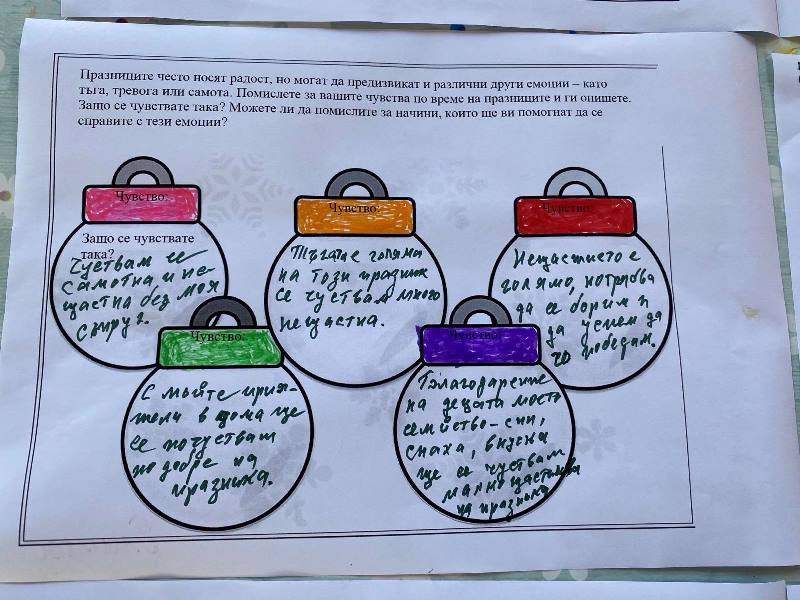 Празниците често носят радост, но могат да предизвикат и различни други емоции – като
тъга, тревога или самота. Помислете за вашите чувства по време на празниците и ги опишете.
Защо се чувствате така? Можете ли да помислите за начини, които ще ви помогнат да се
справите с тези емоции?
Чувство:
Защо се чувствате
така?
Чуствам се
самотна и не-
щастна без моя
съпруг.
Чувство:
Тъгата е голяма
на този празник
се чуствам много
нещастна.
Чувство:
Нещастието е
голямо, но трябва
да се борим и
да успеем да
го победим.
Чувство:
С мойте прия-
тели в дома ще
се почуствам
по добре на
празника.
Чувство:
Благодарение
на децата моето
семейство-син,
снаха, внучка
ще се чуствам
малко щастлива
на празника